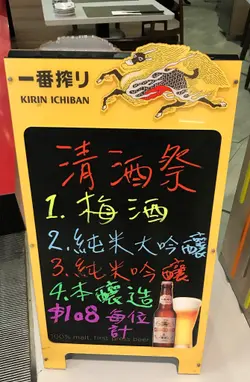 一番搾り
KIRIN ICHIBAN
清酒祭
1. 梅酒
2. 純米大吟釀
3. 純米吟釀
4. 本釀造
$108 每位
計
100% malt. first press beer